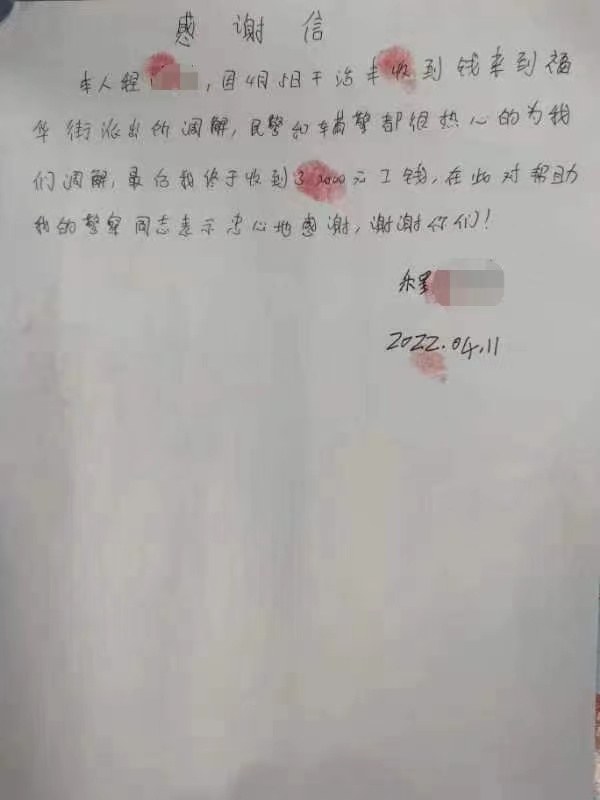 感谢信
本人程，因4月5日干活未收到钱来到福
华街派出所调解，民警和辅警都很热心的为我
们调解，最后我终于收到了2000元工钱，在此对帮助
我的警察同志表示忠心地感谢，谢谢你们！
2022.04.11